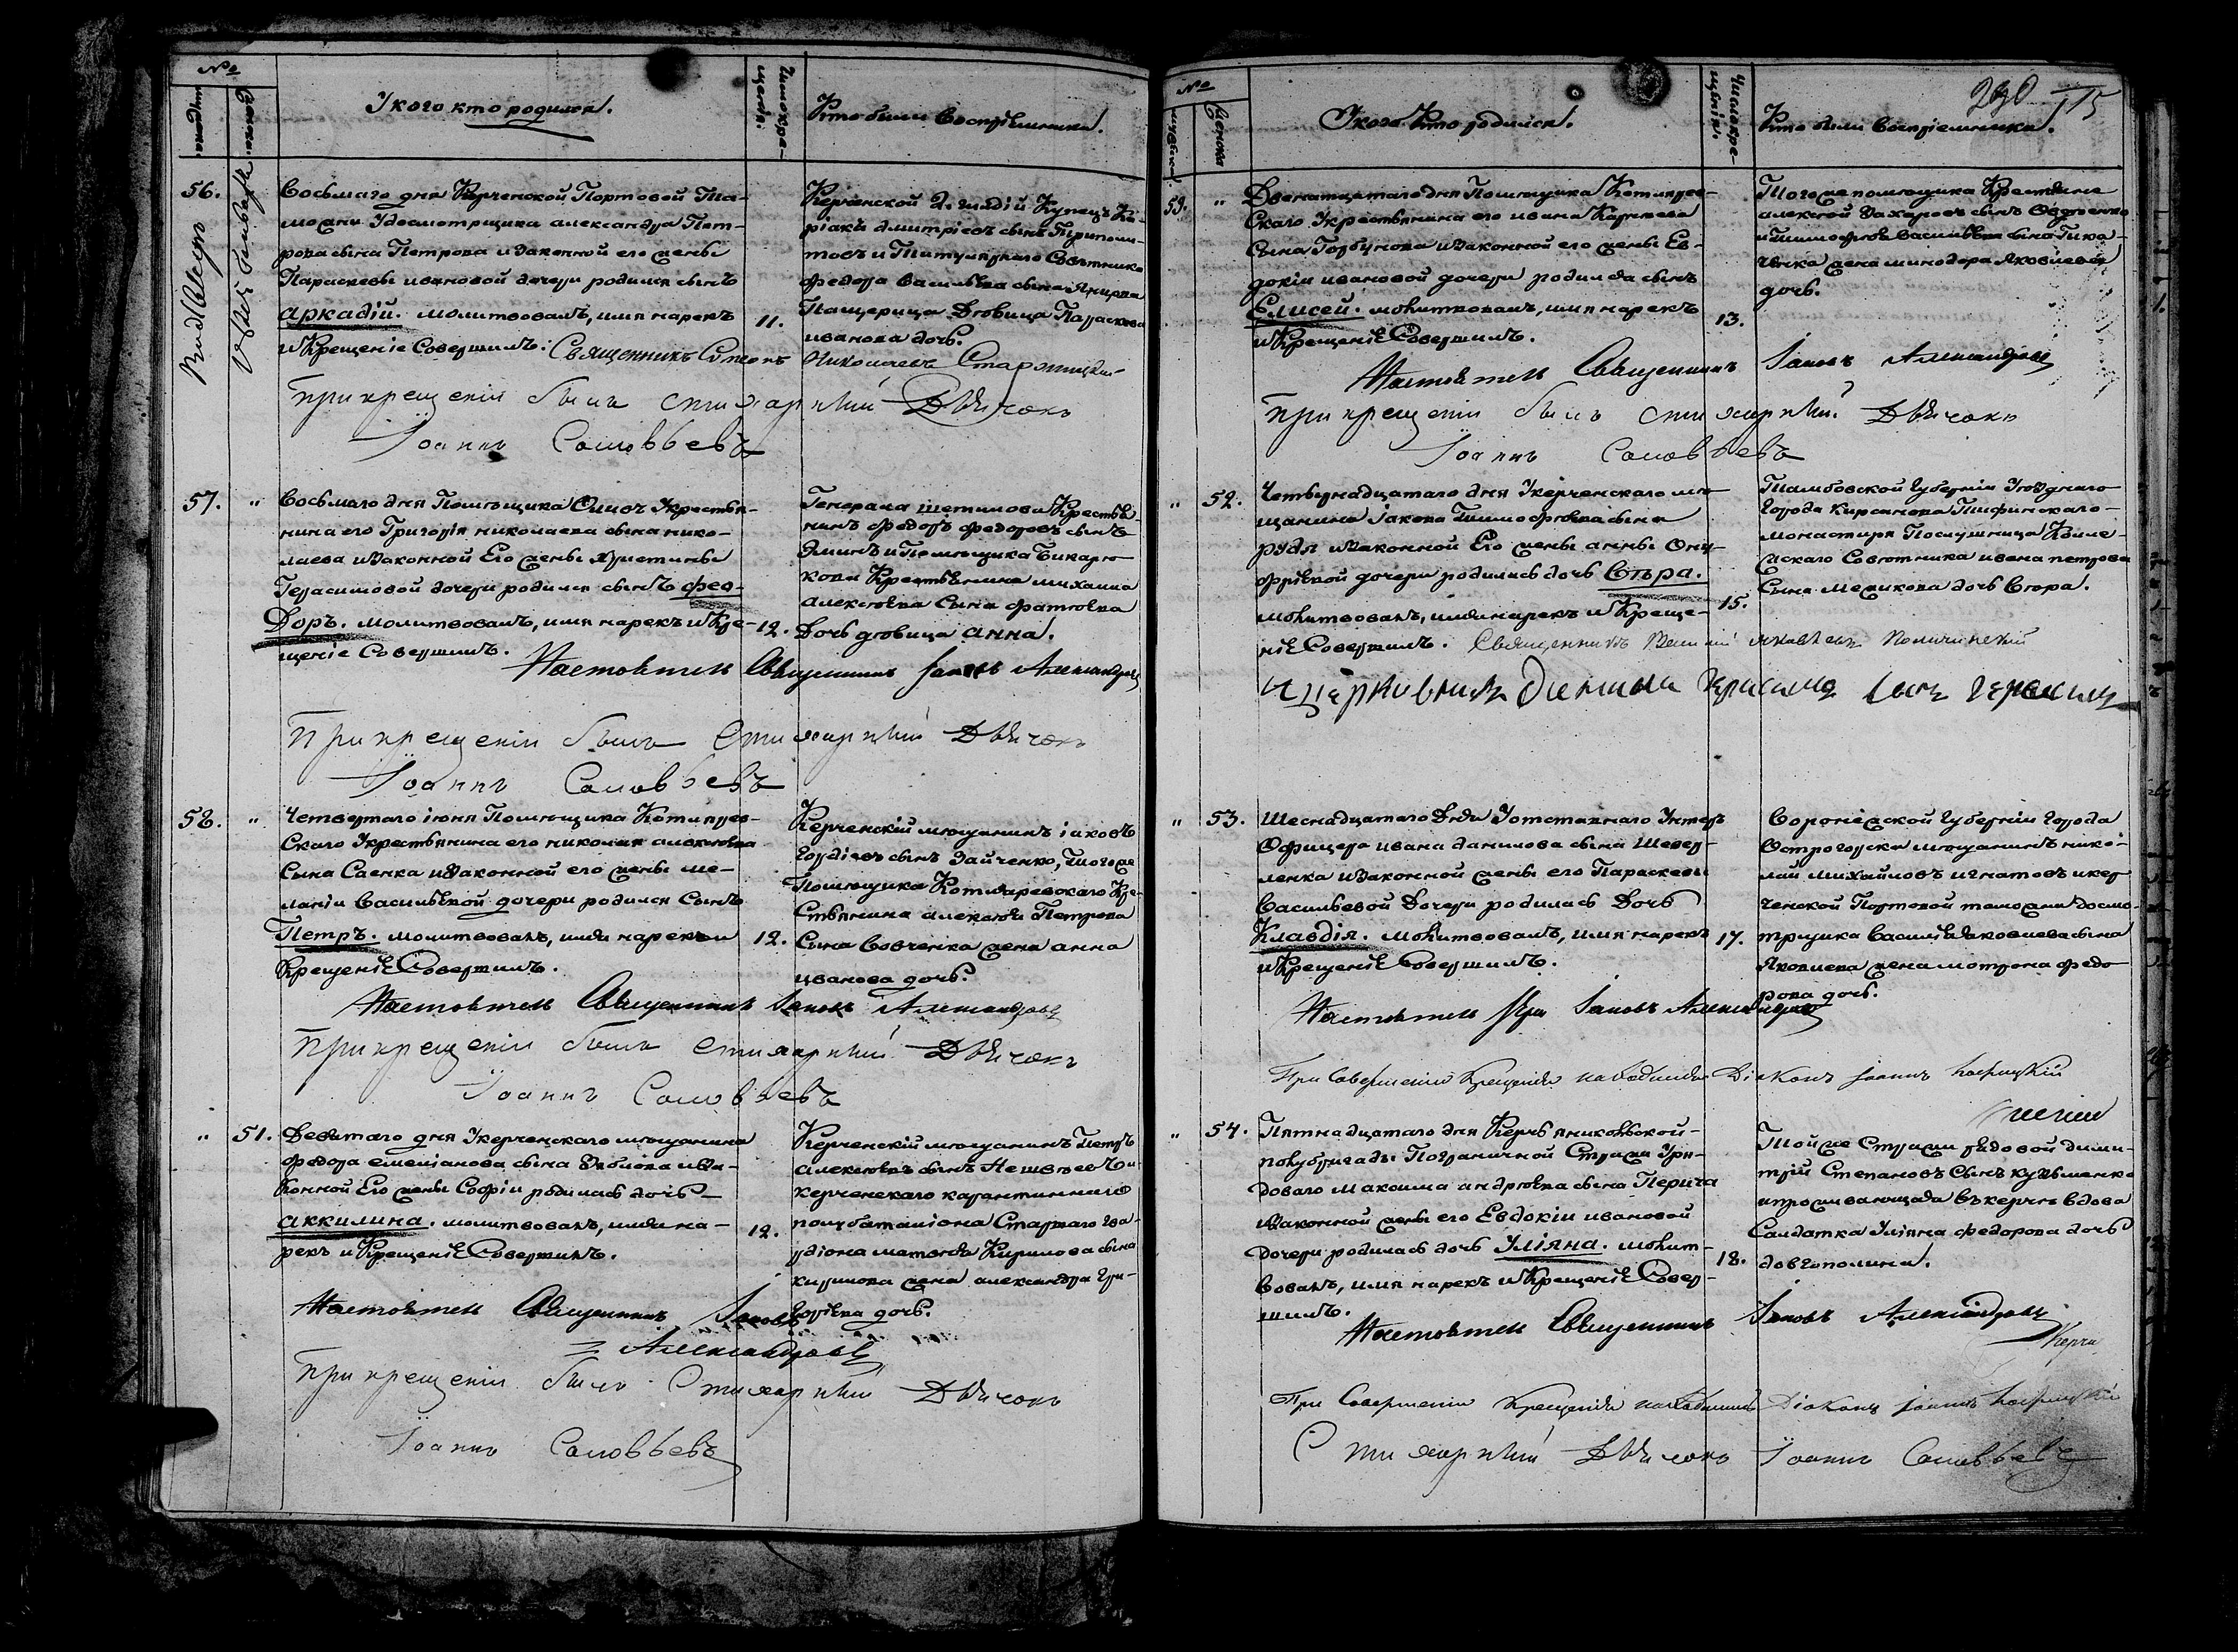 №
У кого кто родился.
Число крещенія.
Кто были Воспріемники.
56.
Восьмаго дня Керченской Портовой Та-
можни Удосмотрщика александра Пет-
рова сына Петрова и Законной его жены
Параскевы ивановой дочери родился сынъ
аркадій. молитвовалъ, имя нарекъ
и Крещеніе Совершилъ: Священникъ Симеонъ Николаевъ
11.
Керченской 2. гилдіи Купецъ Ки-
ріакъ дмитріевъ сынъ
товъ и Титулярнаго Совѣтника
федора Васильева сына
Пащерица Дѣвица Параскева
иванова дочь.
При крещеніи былъ стихарный Дьячокъ
Іоаннъ Соловьевъ
57. "
Восьмаго дня Помѣщика Оливъ Укрестья-
нина его Григорія николаева сына нико-
лаева и Законной Его жены Христины
Герасимовой дочери родился сынъ фео-
Доръ. молитвовалъ, имя нарекъ и Кре-
щеніе Совершилъ.
12.
Генерала Шатилова Крестья-
нинъ федоръ федоровъ сынъ
и Помѣщика
кова Крестьянина михаила
алексѣева Сына фатѣева
Дочь дѣвица анна.
Настоятель Священникъ Іаковъ Александровъ
При крещеніи былъ Стихарный Дьячокъ
Іоаннъ Соловьевъ
58. "
Четвертаго іюня Помѣщика Котлярев-
Скаго Укрестьянина его николая алексѣева
Сына Саенка и Законной его жены ме-
ланіи Васильевой дочери родился Сынъ
Петръ. молитвовалъ, имя нарекъ и
Крещеніе Совершилъ.
12.
Керченскій мѣщанинъ іаковъ
Гордіевъ сынъ Зайченко, Того же
Помѣщика Котляревскаго Кре-
Стьянина алексѣя Петрова
Сына Вовченка жена анна
иванова дочь.
Настоятель Священникъ Іаковъ Александровъ
При крещеніи былъ стихарный Дьячокъ
Іоаннъ Соловьевъ
" 51.
Девятаго дня Укерченскаго мѣщанина
федора емеліанова сына и За-
конной Его жены Софіи родилась дочь
аккилина. молитвовалъ, имя на-
рекъ и Крещеніе Совершилъ.
12.
Керченскій мѣщанинъ Петръ
алексѣевъ сынъ и
керченскаго карантиннаго
полубаталіона Старшаго Гва-
рдіона матвѣя Кирилова сына
кирилова жена александра Гри-
горіева дочь.
Настоятель Священникъ Іаковъ
Александровъ
При крещеніи былъ Стихарный Дьячокъ
Іоаннъ Соловьевъ
№
Женска
У кого Кто родился.
Число крещенія.
Кто были Воспріемники.
115
59. "
Двенатцатаго дня Помѣщика Котлярев-
Скаго Укрестьянина его ивана Карпѣева
Сына Горбунова и Законной его жены Ев-
докіи ивановой дочери родился сынъ
Елисей. молитвовалъ, имя нарекъ
и Крещеніе Совершилъ.
13.
Того же помѣщика Крестьяне
алексѣй Захаровъ сынъ
и Тимофѣя Васильева сына
жена минодора Яковлева
дочь.
Настоятель Священникъ Іаковъ Александровъ
При крещеніи былъ стихарный Дьячокъ
Іоаннъ Соловьевъ
" 52.
Четвернадцатаго дня Укерченскаго мѣ-
щанина Іакова Тимофѣева сына
Рудя и Законной Его жены анны Ону-
фріевой дочери родилась дочь Вѣра.
молитвовалъ, имя нарекъ и Креще-
ніе Совершилъ. Священникъ
15.
Тамбовской Губерніи Уѣзднаго
Города Кирсанова Тифинскаго
монастыря Послушница Колле-
жскаго Совѣтника ивана петрова
Сына меликова дочь Вѣра.
" 53.
Шеснадцатаго Дня Уотставнаго Унтеръ
Офицера ивана данилова сына Шевер-
ленка и Законной жены его Параскевы
Васильевой Дочери родилась Дочь
Клавдія. молитвовалъ, имя нарекъ
и Крещеніе Совершилъ.
17.
Воронежской Губерніи Города
Острогорска мѣщанинъ нико-
лай михайловъ игнатовъ и кер-
ченской Портовой таможни досмо-
трщика Василія Яковлева сына
Яковлева жена мотрона федо
рова дочь.
Настоятель Іаковъ Александровъ
При Совершеніи Крещенія находился Діаконъ Іоаннъ
" 54.
Пятнадцатаго дня Керчь яникольской
полубригады Пограничной Стражи Уря-
доваго максима андрѣева сына Перича
и Законной жены его Евдокіи ивановой
дочери родилась дочь Уліяна. молит-
вовалъ, имя нарекъ и Крещеніе Совер-
шилъ.
18.
Той же Стражи рядовой дими-
трій Степановъ Сынъ кузьменко
и проживающая въ керчи вдова
Салдатка Уліяна федорова дочь
довгополина.
Настоятель Священникъ Іаковъ Александровъ
При Совершеніи Крещенія находился Діаконъ Іоаннъ
Стихарный Дьячокъ Іоаннъ Соловьевъ